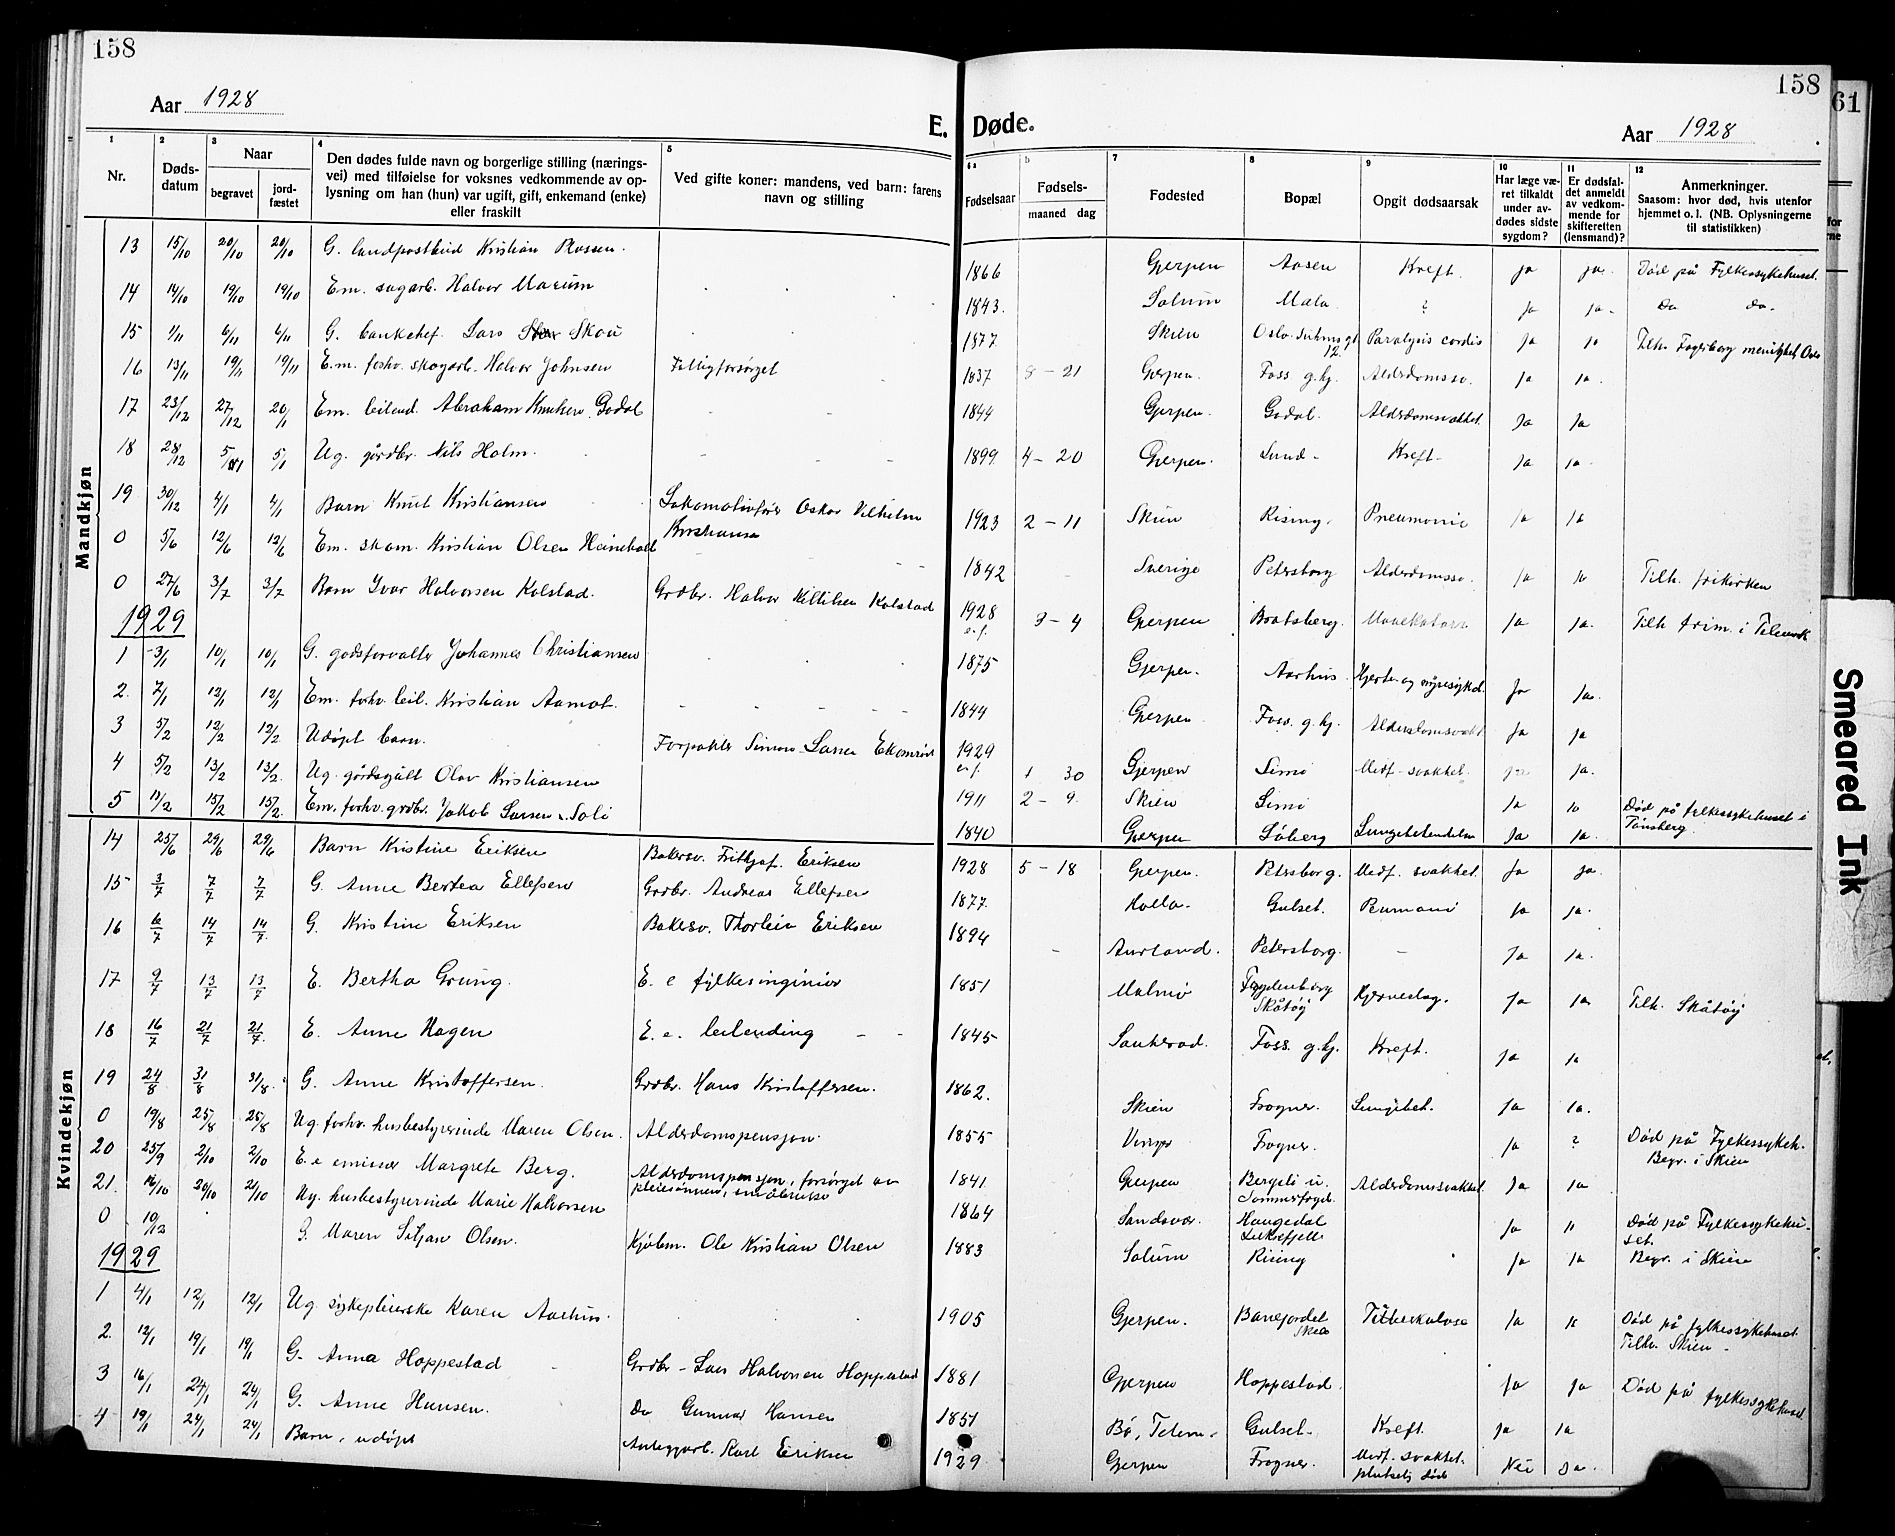 158
Aar 1928
E.
1
Nr.
2
Døds-
datum
3
Naar
begravet
jord-
fæstet
4
Den dødes fulde navn og borgerlige stilling (nærings-
vei) med tilføielse for voksnes vedkommende av op-
lysning om han (hun) var ugift, gift, enkemand (enke)
eller fraskilt
5
Ved gifte koner: mandens, ved barn: farens
navn og stilling
Mandkjøn
13 15/10 20/10 20/10 G. landpostbud Kristian Plassen.
14 14/10 19/10 19/10 Em. sagarb. Halvor Marum
15 1/11 6/11 6/11 G. bankchef. Lars Skou
16 13/11 19/11 19/11 Em. forhv. skogarb. Halvor Johnsen Fattigforsørget
17 23/12 27/12 20/1 Em. leilend. Abraham Knutsen Godal
18 28/12 5/1 5/1 Ug. gårdbr. Nils Holm.
19 30/12 4/1 4/1 Barn Knut Kristiansen Lokomotivfører Oskar Vilhelm
Kristiansen
0 5/6 12/6 12/6 Em. skom. Kristian Olsen
0 27/6 3/7 3/7 Barn Ivar Halvorsen Kolstad. Grdbr. Halvor Kittilsen Kolstad
1929
1 3/1 10/1 10/1 G. godsforvalter Johannes Christiansen
2. 7/1 12/1 12/1 Em. forhv. leil. Kristian Aamot.
3 5/2 12/2 12/2 Udøpt barn. Forpakter Simon Larsen
4 5/2 13/2 13/2. Ug. gårdsgutt Olav Kristiansen
5 11/2 15/2 15/2. Em. forhv. grdbr. Jakob Larsen Soli
Kvindekjøn
14 25/6 29/6 29/6 Barn Kristine Eriksen Bakersv. Frithjof. Eriksen
15 3/7 7/7 7/7 G. Anne Bertea Ellefsen Grdbr. Andreas Ellefsen
16 6/7 14/7 14/7. G. Kristine Eriksen Bakersv. Thorleiv Eriksen
17 9/7 13/7 13/7 E. Bertha Grung. E. e fylkesingeniør
18 16/7 21/7 21/7. E. Anne Hagen E. e. leilending
19 24/8 31/8 31/8. G. Anne Kristoffersen. Grdbr. Hans Kristoffersen.
0 19/8 25/8 25/8 Ug. forhv. husbestyrerinde Maren Olsen. Alderdomspensjon.
20 25/9 2/10 2/10 E. e emissær Margrete Berg. Alderdomspensjon, forsørget av
21. 16/10 20/10 21/10 Ug. husbestyrerinde Marie Halvorsen
0 10/12 G. Maren Siljan Olsen. Kjøbm. Ole Kristian Olsen
1929
1 4/1 12/1 12/1 Ug. sykepleierske Karen Aarhus.
2. 12/1 19/1 19/1 G. Anna Hoppestad Grdbr - Lars Halvorsen Hoppestad
3 16/1 24/1 24/1 G. Anne Hansen. Do Gunnar Hansen
4 19/1 24/1 24/1 Barn, udøpt Karl Eriksen
158
Døde.
Aar 1928
Fødselsaar
Fødsels-
maaned dag
7
Fødested
8
Bopæl
9
Opgit dødsaarsak
10
Har læge væ-
ret tilkaldt
under av-
dødes sidste
sygdom?
11
Er dødsfal-
det anmeldt
av vedkom-
mende for
skifteretten
(lensmand)?
12
Anmerkninger.
Saasom: hvor død, hvis utenfor
hjemmet o. l. (NB. Oplysningerne
til statistikken)
1866 Gjerpen Aasen Kreft. ja ja. Død på Fylkessykehuset.
1843. Solum Mæla ? ja ja. Do do.
1877 Skien Oslo. Suhms gt. 12. Paralysis cordis ja ja Tilh. Fagerborg menighet Oslo
1837 8 - 21 Gjerpen. Foss g.hj. Alderdomssv. ja ja.
1844 Gjerpen. Godal. Alderdomssvakhet. ja ja
1899 4 - 20 Gjerpen. Lund - Kreft - ja ja.
1923 2 - 11 Skien Rising. Pneumoni ja ja
1842 Sverige Petersborg Alderdomssv. ja ja Tilh. frikirken
1928 3 - 4 Gjerpen Bratsberg. ja ja. Tilh frim. i Telemark
e.f.
1875 Gjerpen. Aarhus Hjerte- og nyresykd. ja ja.
1844 Gjerpen Foss. g.hj. Alderdomssvakh. ja ja
1929 1 30 Gjerpen Limi Medf. svakhet. ja ja.
e.f.
1911 2 - 9. Skien Limi ja ja Død på fylkessykehuset i
Tønsberg.
1840 Gjerpen Løberg Lungebetendelse ja ja.
1928 5 - 18 Gjerpen. Petersborg. Medf. svakhet. ja ja.
1877. Holla. Gulset. ja ja.
1894 - Aurland. Petersborg. - ja ja.
1851 Malmø Skåtøy Hjerneslag. ja ja. Tilh. Skåtøy
1845 Sauherad. Foss. g.hj. Kreft. ja ja
1862. Skien Frogner. Lungebet. ja ja.
1855 Frogner. ja ? Død på Fylkessykeh.
Begr. i Skien
1841 Gjerpen Bergeli u.
Sommerfryd. Alderdomssvakhet. ja ja
1864 Sandsvær. Haugedal
Luksefjell ja ja Død på Fylkesykehu-
set.
1883 Solum Rising ja ja Begr. i Skien
1905 Gjerpen. Banefordet
Skien Tuberkulose ja ja Død på fylkessykehuset
Tilh. Skien -
1881 Gjerpen Hoppestad. ja ja Død på fylkessykehuset
1851 Bø, Telem. Gulset. Kreft. ja ja
1929 Gjerpen Frogner. Medf. svakhet.
plutselig død Nei Ja.
61
Smeared Ink